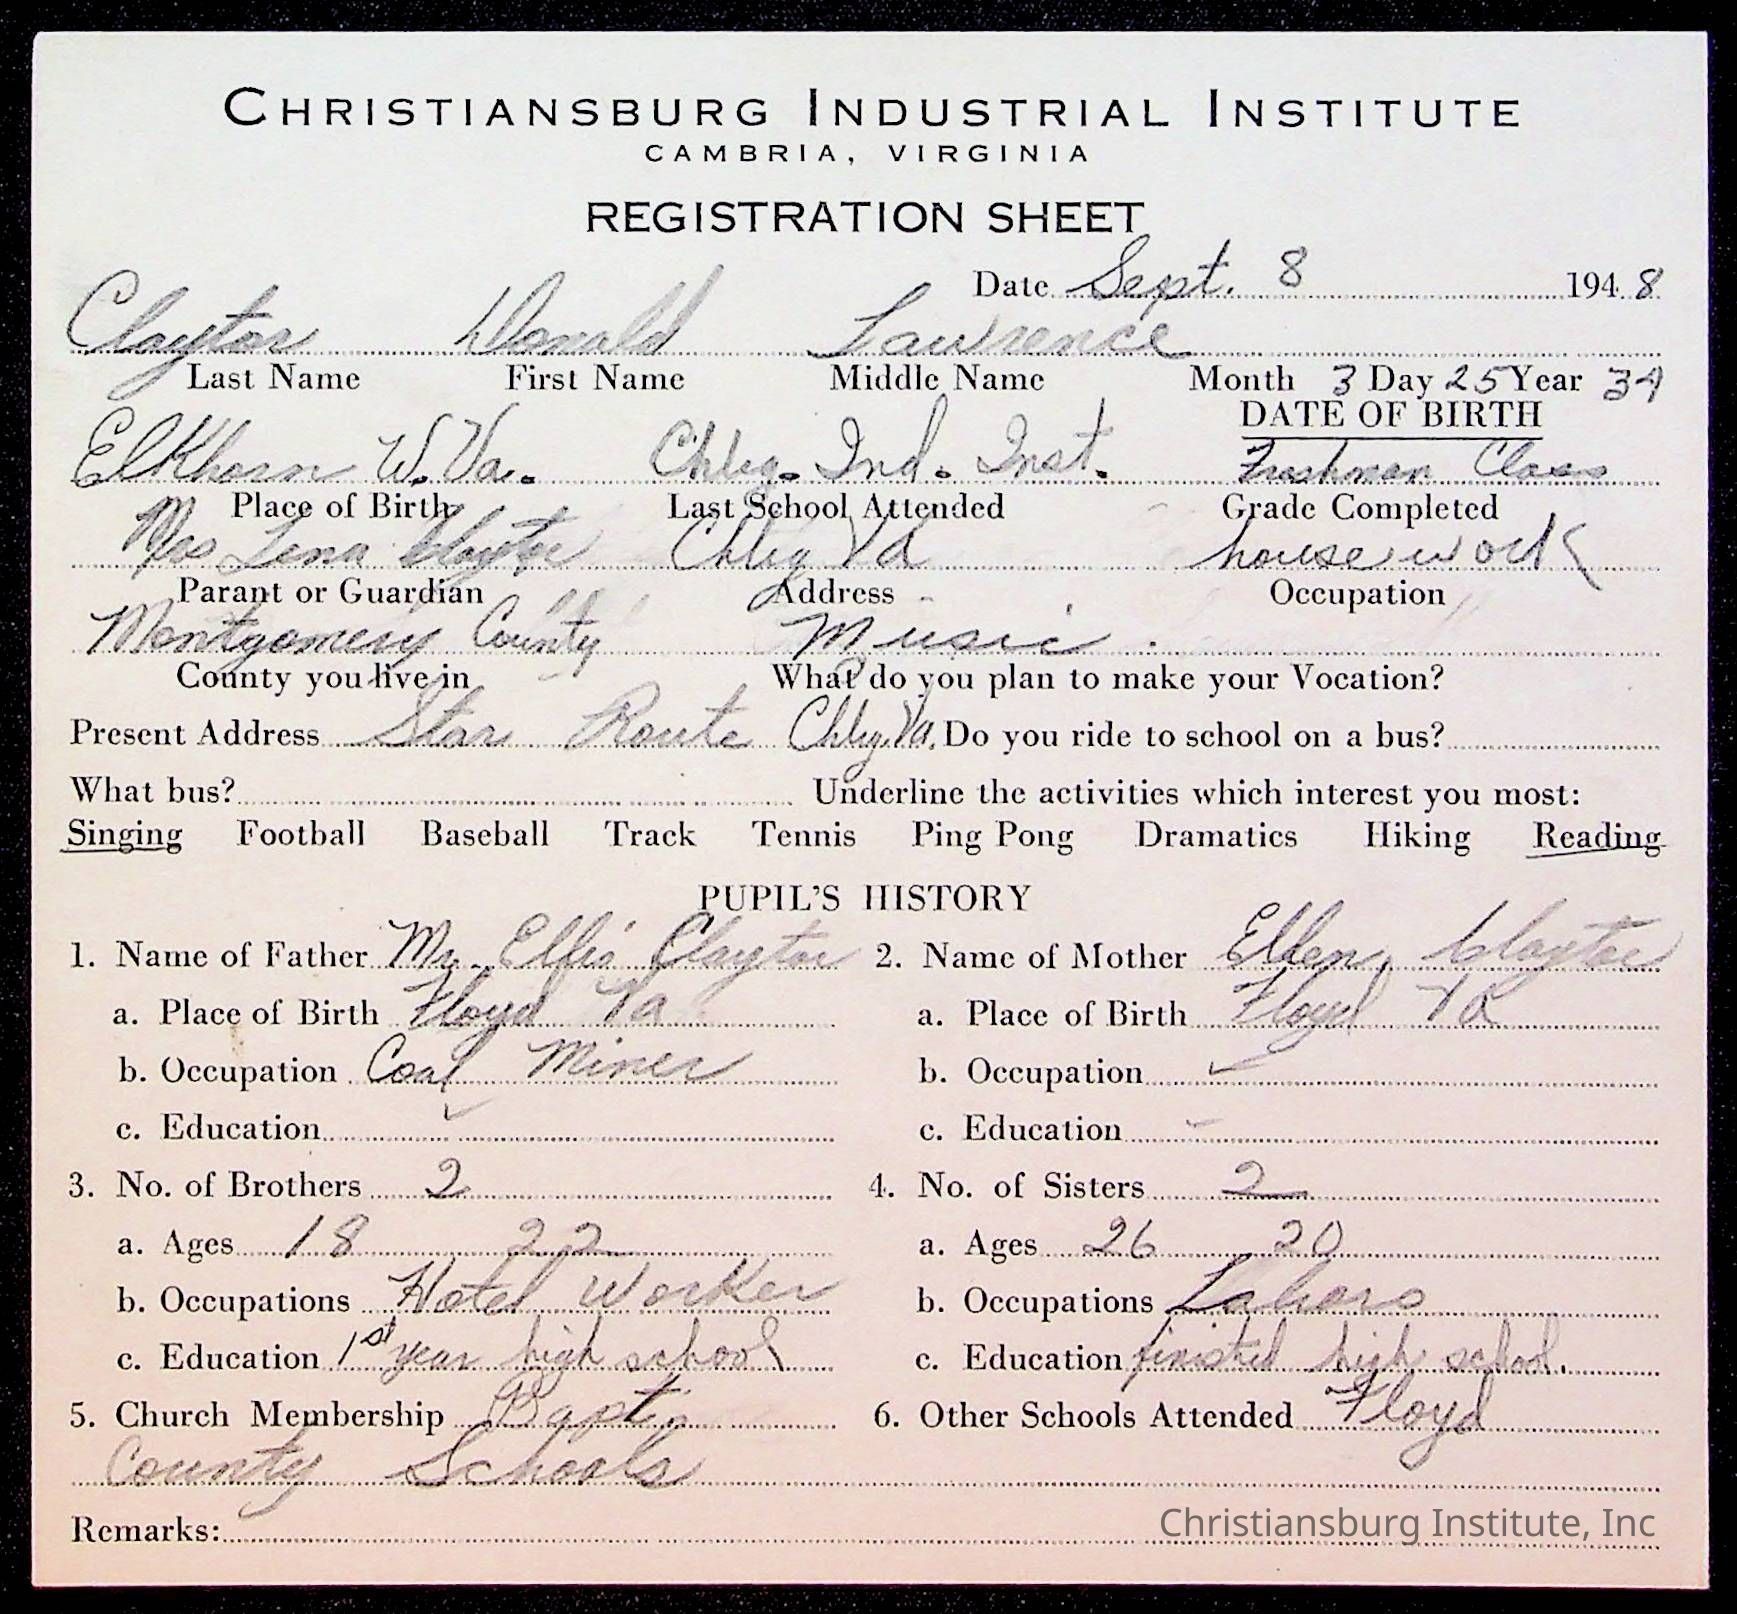 CHRISTIANSBURG INDUSTRIAL INSTITUTE
CAMBRIA, VIRGINIA
REGISTRATION SHEET
Date Sept. 8 1948
Claytor Donald Lawrence
Last Name First Name Middle Name Month 3 Day 25 Year 34
DATE OF BIRTH
Elkhorn W.Va. Chbg. Ind. Inst. Freshman Class
Place of Birth Last School Attended Grade Completed
Mrs Lena Claytor Chbg Va housework
Parant or Guardian Address Occupation
Montgomery County Music.
County you live in What do you plan to make your Vocation?
Present Address Star Route Chbg. Va. Do you ride to school on a bus?
What bus? Underline the activities which interest you most:
Singing Football Baseball Track Tennis Ping Pong Dramatics Hiking Reading
PUPIL'S HISTORY
1. Name of Father Mr. Ellis Claytor 2. Name of Mother Ellen Claytor
a. Place of Birth Floyd Va a. Place of Birth Floyd Va
b. Occupation Coal Miner b. Occupation
c. Education c. Education
3. No. of Brothers 2 4. No. of Sisters 2
a. Ages 18 22 a. Ages 26 20
b. Occupations Hotel Worker b. Occupations Labors
c. Education 1st year high school c. Education finished high school.
5. Church Membership Bapt. 6. Other Schools Attended Floyd
County Schools
Remarks:
Christiansburg Institute, Inc